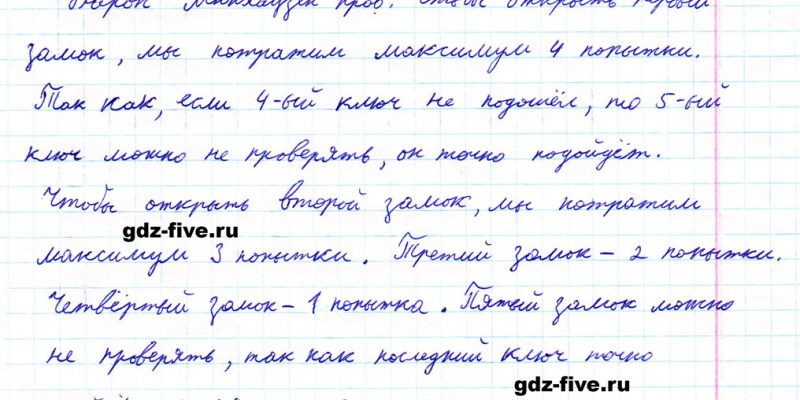 Барон Мюнхаузен прав. Чтобы открыть первый
замок, мы потратим максимум 4 попытки.
Так как, если 4-ый ключ не подошёл, то 5-ый
ключ можно не проверять, он точно подойдёт.
Чтобы открыть второй замок, мы потратим
gdz-five.ru
максимум 3 попытки. Третий замок – 2 попытки.
Четвёртый замок – 1 попытка. Пятый замок можно
не проверять, так как последний ключ точно
gdz-five.ru